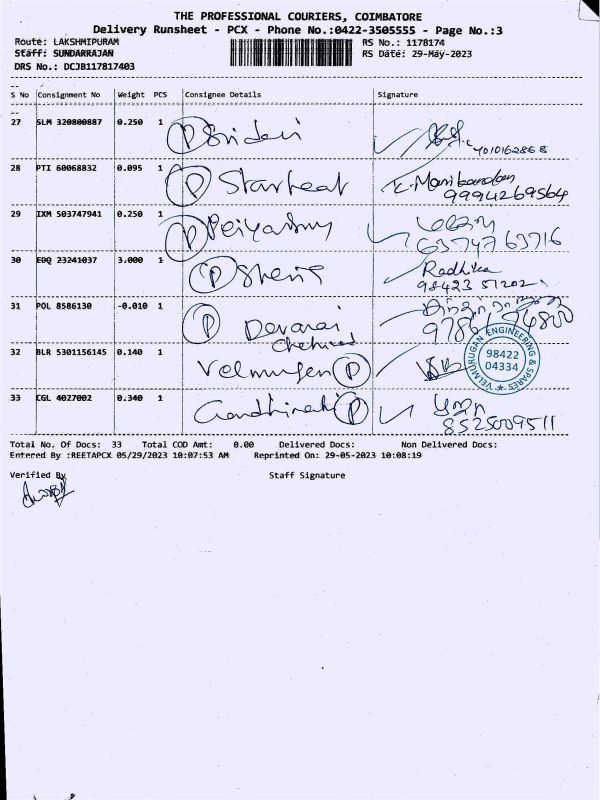 THE PROFESSIONAL COURIERS, COIMBATORE
Delivery Runsheet - PCX - Phone No.:0422-3505555 - Page No.:3
Route: LAKSHMIPURAM RS No.: 1178174
Staff: SUNDARRAJAN RS Date: 29-May-2023
DRS No.: DCJB117817403
S No Consignment No Weight PCS Consignee Details Signature
27 SLM 320800887 0.250 1 P Sridevi
28 PTI 60068832 0.095 1 P Starheat K. Manikandan
9994269564
29 IXM 503747941 0.250 1 P
6374763716
30 EDQ 23241037 3.000 1 P Radhika
98423 51202
31 POL 8586130 -0.010 1 P Devarai
32 BLR 5301156145 0.140 1 Velmurgen P
VELMURUGAN ENGINEERING & SPARES
98422
04334
33 CGL 4027002 0.340 1 P
8525009511
Total No. Of Docs: 33 Total COD Amt: 0.00 Delivered Docs: Non Delivered Docs:
Entered By :REETAPCX 05/29/2023 10:07:53 AM Reprinted On: 29-05-2023 10:08:19
Verified By Staff Signature